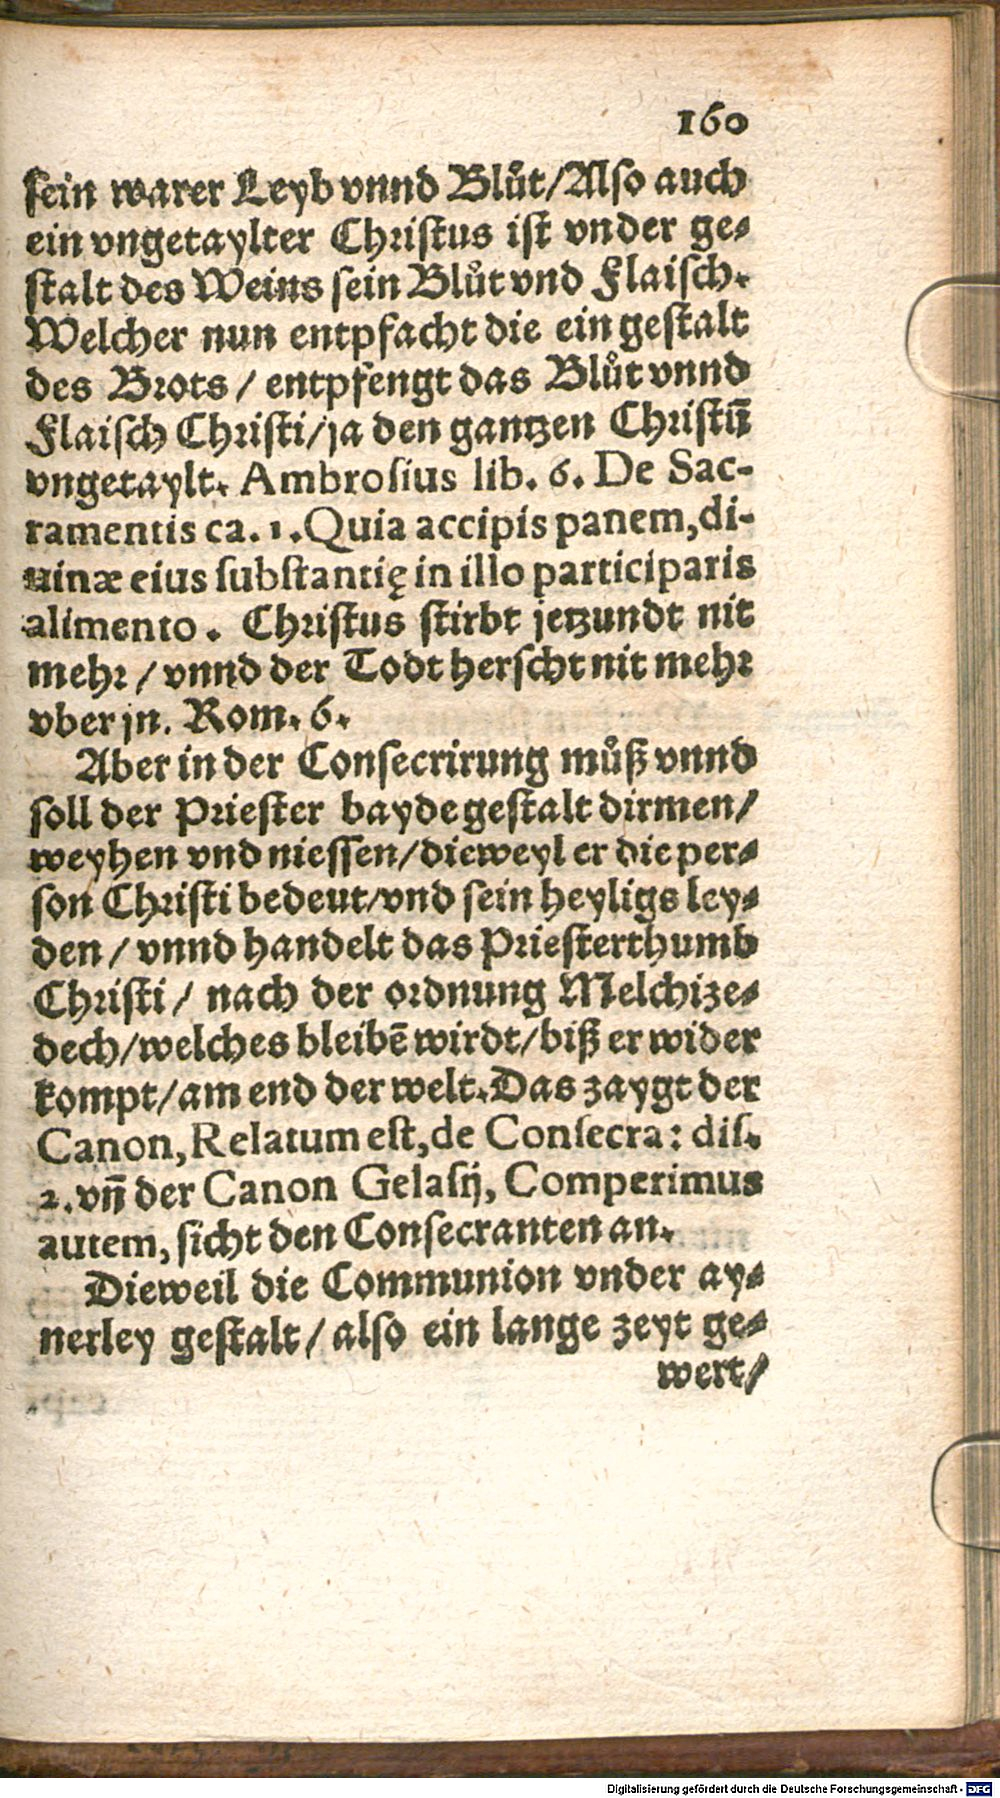 160
sein warer Leyb vnnd Blůt/Also auch
ein vngetaylter Christus ist vnder ge-
stalt des Weins sein Blůt vnd Flaisch.
Welcher nun entpfacht die ein gestalt
des Brots / entpfengt das Blůt vnnd
Flaisch Christi/ja den gantzen Christū
vngetaylt. Ambrosius lib. 6. De Sac-
ramentis ca. 1. Quia accipis panem, di-
uinæ eius substantię in illo participaris
alimento. Christus stirbt jetzundt nit
mehr / vnnd der Todt herscht nit mehr
vber jn. Rom. 6.
Aber in der Consecrirung můß vnnd
soll der Priester bayde gestalt dirmen/
weyhen vnd niessen/dieweyl er die per-
son Christi bedeut/vnd sein heyligs ley-
den / vnnd handelt das Priesterthumb
Christi / nach der ordnung Melchize-
dech/welches bleibē wirdt/biß er wider
kompt/am end der welt. Das zaygt der
Canon, Relatum est, de Consecra: dis.
2. vn̄ der Canon Gelasij, Comperimus
autem, sicht den Consecranten an.
Dieweil die Communion vnder ay-
nerley gestalt / also ein lange zeyt ge-
wert/
Digitalisierung gefördert durch die Deutsche Forschungsgemeinschaft - DFG